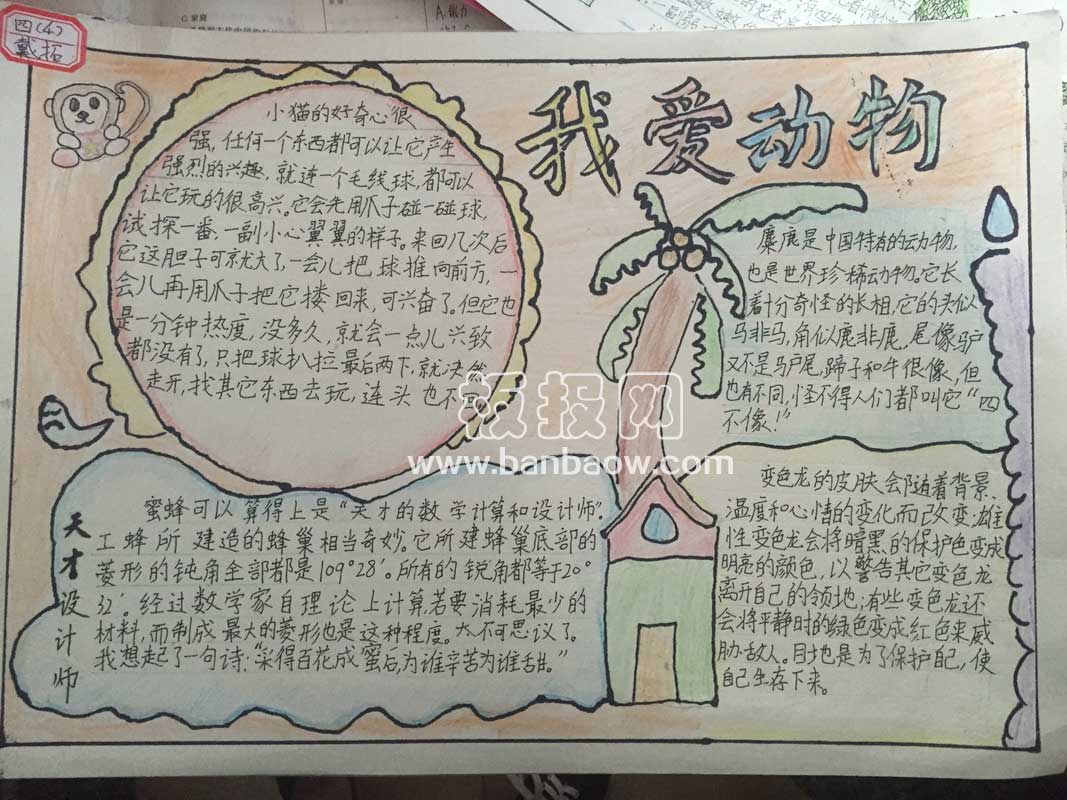 四(4)
戴拓
我爱动物
小猫的好奇心很
强,任何一个东西都可以让它产生
强烈的兴趣,就连一个毛线球,都可以
让它玩的很高兴。它会先用爪子碰一碰球,
试探一番,一副小心翼翼的样子。来回几次后
它这胆子可就大了,一会儿把球推向前方,一
会儿再用爪子把它搂回来,可兴奋了。但它也
是一分钟热度,没多久,就会一点儿兴致
都没有了,只把球扒拉最后两下,就决然
走开,找其它东西去玩,连头也不
麋鹿是中国特有的动物,
也是世界珍稀动物。它长
着十分奇怪的长相,它的头似
马非马,角似鹿非鹿,尾像驴
又不是马尾,蹄子和牛很像,但
也有不同,怪不得人们都叫它“四
不像!”
板报网
www.banbaow.com
天才设计师
蜜蜂可以算得上是“天才的数学计算和设计师”。
工蜂所建造的蜂巢相当奇妙。它所建蜂巢底部的
菱形的钝角全部都是109°28′。所有的锐角都等于20°
32′。经过数学家自理论上计算若要消耗最少的
材料,而制成最大的菱形也是这种程度。太不可思议了。
我想起了一句诗:“采得百花成蜜后为谁辛苦为谁甜。”
变色龙的皮肤会随着背景、
温度和心情的变化而改变;雄
性变色龙会将暗黑的保护色变成
明亮的颜色,以警告其它变色龙
离开自己的领地;有些变色龙还
会将平静时的绿色变成红色来威
胁敌人。目地是为了保护自己,使
自己生存下来。